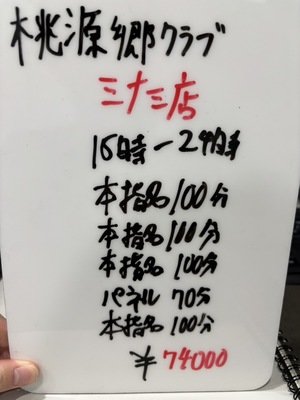 桃源郷クラブ
ミナミ店
16時-24時
本指名100分
本指名100分
本指名100分
パネル 70分
本指名100分
¥74000